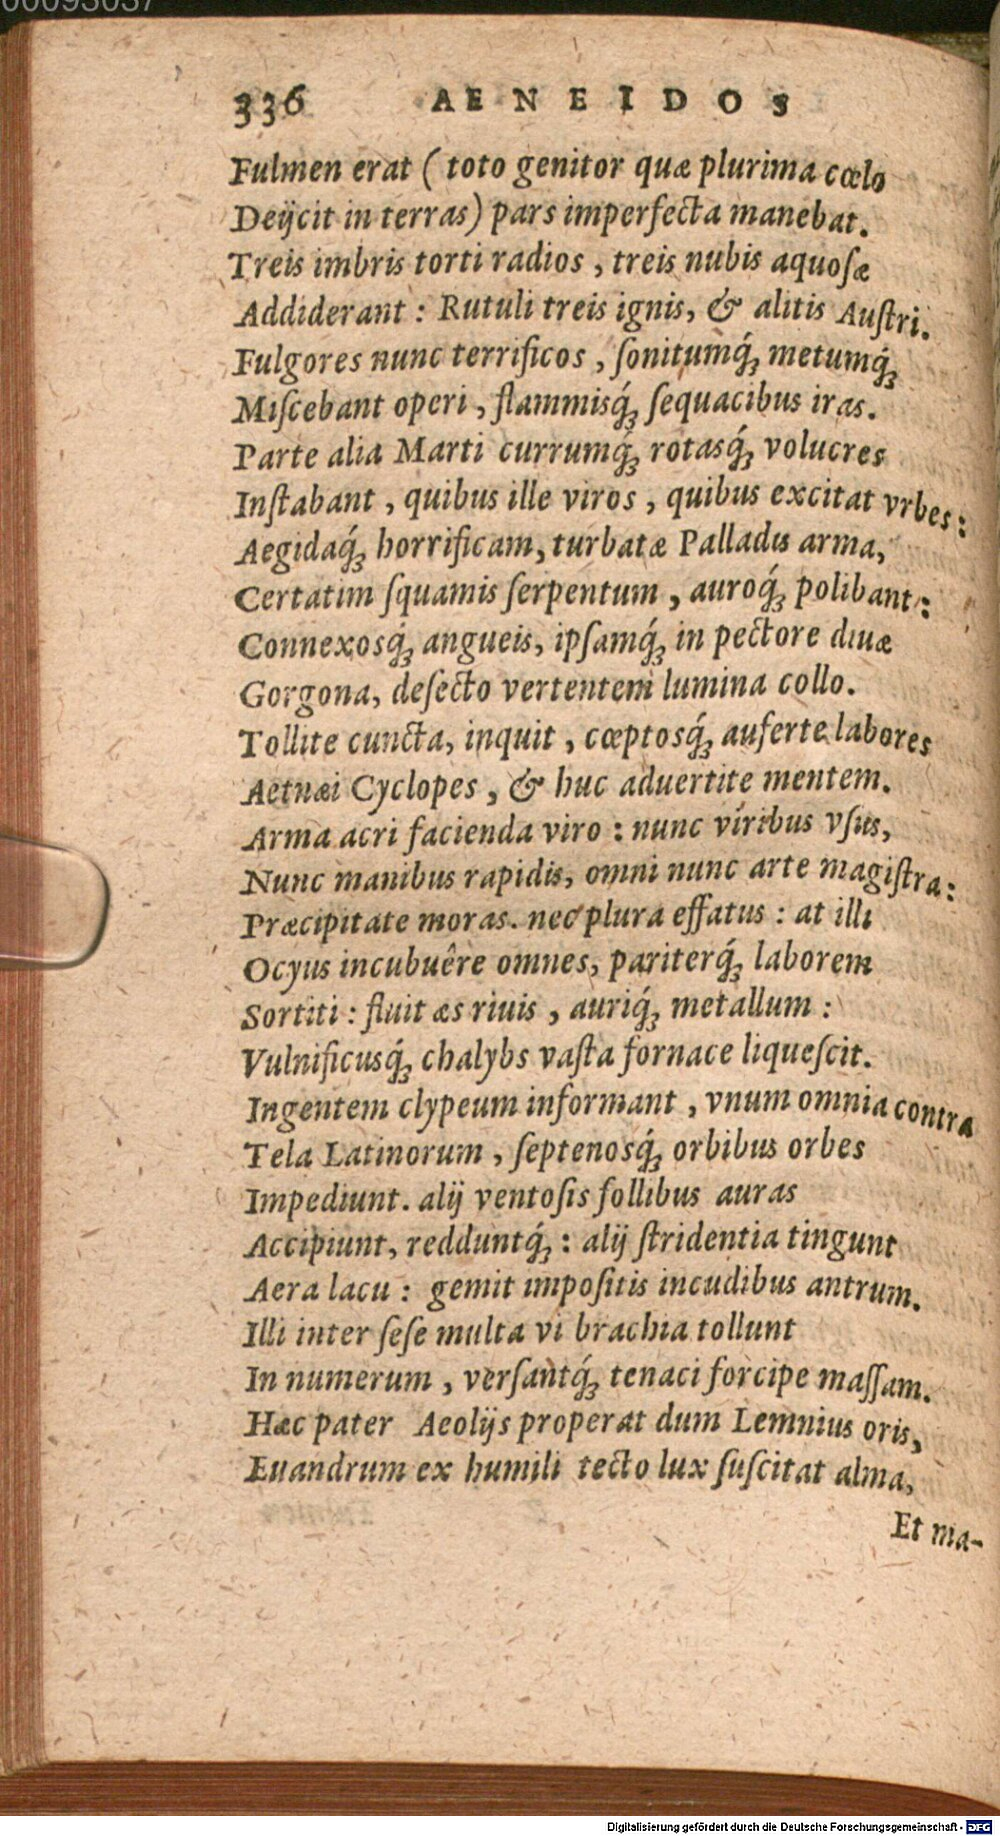 00093037
336 AENEIDOS
Fulmen erat (toto genitor quæ plurima cœlo
Deijcit in terras) pars imperfecta manebat.
Treis imbris torti radios, treis nubis aquoſæ
Addiderant: Rutuli treis ignis, & alitis Auſtri.
Fulgores nunc terrificos, ſonitumq́; metumq́;
Miſcebant operi, flammisq́; ſequacibus iras.
Parte alia Marti currumq́; rotasq́; volucres
Inſtabant, quibus ille viros, quibus excitat vrbes:
Aegidaq́; horrificam, turbatæ Palladis arma,
Certatim ſquamis ſerpentum, auroq́; polibant:
Connexosq́; angueis, ipſamq́; in pectore diuæ
Gorgona, deſecto vertentem lumina collo.
Tollite cuncta, inquit, cœptosq́; auferte labores
Aetnæi Cyclopes, & huc aduertite mentem.
Arma acri facienda viro: nunc viribus vſus,
Nunc manibus rapidis, omni nunc arte magiſtra:
Præcipitate moras. nec plura effatus: at illi
Ocyus incubuêre omnes, pariterq́; laborem
Sortiti: fluit æs riuis, auriq́; metallum:
Vulnificusq́; chalybs vaſta fornace liqueſcit.
Ingentem clypeum informant, vnum omnia contra
Tela Latinorum, ſeptenosq́; orbibus orbes
Impediunt. alij ventoſis follibus auras
Accipiunt, redduntq́;: alij ſtridentia tingunt
Aera lacu: gemit impoſitis incudibus antrum.
Illi inter ſeſe multa vi brachia tollunt
In numerum, verſantq́; tenaci forcipe maſſam.
Hæc pater Aeolijs properat dum Lemnius oris,
Euandrum ex humili tecto lux ſuſcitat alma,
Et ma-
Digitalisierung gefördert durch die Deutsche Forschungsgemeinschaft - DFG